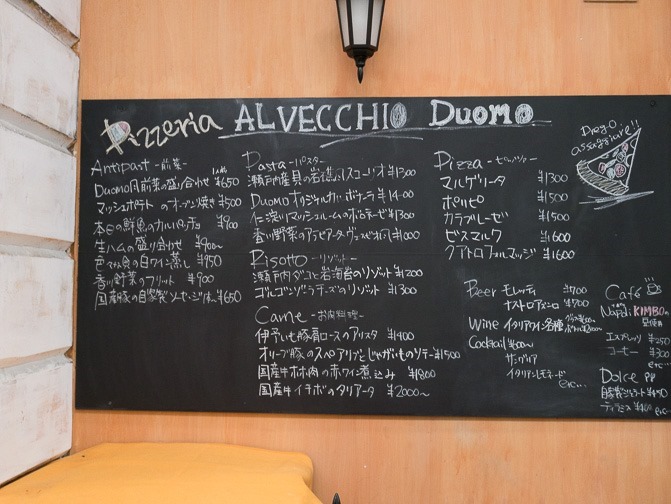 Pizzeria ALVECCHIO Duomo
Antipast -前菜-
Duomo風前菜の盛り合わせ ¥650
マッシュポテトのオーブン焼き ¥500
本日の鮮魚のカルパッチョ ¥900
生ハムの盛り合わせ ¥900〜
ムール貝の白ワイン蒸し ¥950
香川野菜のフリット ¥900
国産豚の自家製ソーセージ ¥650
Pasta -パスタ-
瀬戸内産貝の岩礁風スコーリオ ¥1300
Duomoオリジナルカルボナーラ ¥1400
マッシュルームのボロネーゼ ¥1300
香川野菜のアラビアータ ¥1000
Risotto -リゾット-
瀬戸内ダコと岩海苔のリゾット ¥1200
ゴルゴンゾーラチーズのリゾット ¥1300
Carne -お肉料理-
伊予いも豚肩ロースのアリスタ ¥1400
オリーブ豚のスペアリブとじゃがいものソテー ¥1500
国産牛ホホ肉の赤ワイン煮込み ¥1800
国産牛イチボのタリアータ ¥2000〜
Pizza -ピッツァ-
マルゲリータ ¥1300
¥1500
カラブレーゼ ¥1500
ビスマルク ¥1600
クアトロフォルマッジ ¥1600
Prego
assaggiare!!
Beer モレッティ ¥700
ナストロアズーロ ¥700
Wine イタリアワイン各種
Cocktail ¥600〜
サングリア
イタリアンレモネード
etc...
Café
Napoli KIMBOの
豆使用
エスプレッソ ¥250
コーヒー ¥300
etc...
Dolce
自家製ジェラート ¥450
ティラミス ¥400 etc...